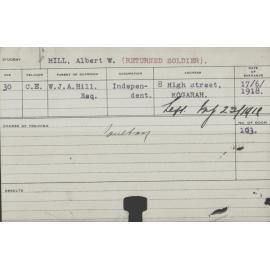 STUDENT HILL, Albert W. (RETURNED SOLDIER).
AGE RELIGION PARENT OR GUARDIAN OCCUPATION ADDRESS DATE OF ENTRANCE
30 C.E. W.J.A.Hill. Esq. Indepen-dent. 8 High street, KOGARAH. 17/6/1918.
Left
COURSE OF TRAINING
NO. OF BOOK
Poultry
103.
RESULTS